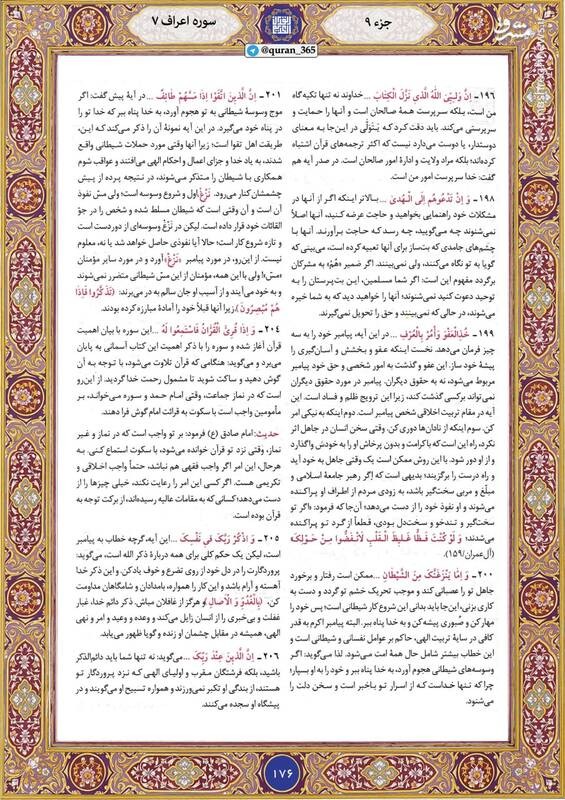 جزء ۹
سوره اعراف ۷
@quran_365
مشرق
۱۹۶- اِنَّ وَلِیِّیَ اللهُ الَّذی نَزَّلَ الْکِتابَ ... خداوند نه تنها تکیه‌گاه
من است، بلکه سرپرست همهٔ صالحان است و آنها را حمایت و
سرپرستی می‌کند. باید دقت کرد که یَتَوَلَّی در این‌جا به معنای
دوستدار، یا دوست می‌دارد نیست که اکثر ترجمه‌های قرآن اشتباه
کرده‌اند؛ بلکه مراد ولایت و ادارهٔ امور صالحان است. در صدر آیه هم
گفت: خدا سرپرست امور من است.
۱۹۸- وَ اِنْ تَدْعُوهُم اِلَی الْهُدیٰ ... بالاتر اینکه اگر از آنها در
مشکلات خود راهنمایی بخواهید و حاجت عرضه کنید، آنها اصلاً
نمی‌شنوند چه می‌گویید، چه رسد که حاجت برآورند. آنها با
چشم‌های جامدی که بت‌ساز برای آنها تعبیه کرده است، می‌بینی که
گویا به تو نگاه می‌کنند، ولی نمی‌بینند. اگر ضمیر «هُمْ» به مشرکان
برگردد مفهوم این است: اگر شما مسلمین، این بت‌پرستان را به
توحید دعوت کنید نمی‌شنوند؛ آنها را خواهید دید که به شما خیره
می‌شوند، در حالی که نمی‌بینند و حق را تحویل نمی‌گیرند.
۱۹۹- خُذِ الْعَفْوَ وَ أْمُرْ بِالْعُرْفِ ... در این آیه، پیامبر خود را به سه
چیز فرمان می‌دهد. نخست اینکه عفو و بخشش و آسان‌گیری را
پیشهٔ خود ساز. این عفو و گذشت به امور شخصی و حق خود پیامبر
مربوط می‌شود، نه به حقوق دیگران. پیامبر در مورد حقوق دیگران
نمی‌تواند برکسی گذشت کند، زیرا این ترویج ظلم و فساد است. این
آیه در مقام تربیت اخلاقی شخص پیامبر است. دوم اینکه به نیکی امر
کن. سوم اینکه از نادان‌ها دوری کن. وقتی سخن انسان در جاهل اثر
نکرد، راه این است که با کرامت و بدون پرخاش او را به خودش واگذارد
و از او دور شود. با این روش ممکن است یک وقتی جاهل به خود آید
و راه درست را برگزیند؛ بدیهی است که اگر رهبر جامعهٔ اسلامی و
مبلّغ و مربی سخت‌گیر باشد، به زودی مردم از اطراف او پراکنده
می‌شوند و او نفوذ خود را از دست می‌دهد؛ آن‌جا که فرمود: «اگر تو
سخت‌گیر و تندخو و سخت‌دل بودی، قطعاً از گرد تو پراکنده
می‌شدند؛ وَ لَوْ کُنْتَ فَظّاً غَلیظَ الْقَلْبِ لَانْفَضُّوا مِنْ حَوْلِکَ
(آل‌عمران/۱۵۹).
۲۰۰- وَ اِمّا یَنْزَغَنَّکَ مِنَ الشَّیْطانِ ... ممکن است رفتار و برخورد
جاهل تو را عصبانی کند و موجب تحریک خشم تو گردد و دست به
کاری بزنی، این‌جا باید بدانی این شروع کار شیطانی است؛ پس خود را
مهار کن و صبوری پیشه کن و به خدا پناه ببر. البته پیامبر اکرم به قدر
کافی در سایهٔ تربیت الهی، حاکم بر عوامل نفسانی و شیطانی است و
این خطاب بیشتر شامل حال همهٔ امت می‌شود. لذا می‌گوید: اگر
وسوسه‌های شیطانی هجوم آورد، به خدا پناه ببر و خود را به او بسپار؛
چرا که تنها خداست که از اسرار تو باخبر است و سخن دلت را
می‌شنود.
۲۰۱- اِنَّ الَّذینَ اتَّقَوْا اِذا مَسَّهُمْ طائِفٌ ... در آیهٔ پیش گفت: اگر
موج وسوسهٔ شیطانی به تو هجوم آورد، به خدا پناه ببر که خدا تو را
در پناه خود می‌گیرد. در این آیه نمونهٔ آن را ذکر می‌کند که این،
طریقت اهل تقوا است؛ زیرا آنها وقتی مورد حملات شیطانی واقع
شدند، به یاد خدا و جزای اعمال و احکام الهی می‌افتند و عواقب شوم
همکاری با شیطان را متذکر می‌شوند، در نتیجه پرده از پیش
چشمشان کنار می‌رود. نَزْغ اول و شروع وسوسه است؛ ولی مسّ نفوذ
آن است و آن وقتی است که شیطان مسلط شده و شخص را در جوّ
القائات خود قرار داده است. لیکن در نَزْغ وسوسه‌ای از دوردست است
و تازه شروع کار است؛ حالا آیا نفوذی حاصل خواهد شد یا نه، معلوم
نیست. از این‌رو، در مورد پیامبر «نَزْغ» آورد و در مورد سایر مؤمنان
«مسّ»؛ ولی با این همه، مؤمنان از این مسّ شیطانی متضرر نمی‌شوند
و به خود می‌آیند و از آسیب او جان سالم به در می‌برند: (تَذَکَّرُوا فَاِذا
هُمْ مُبْصِرُونَ)، زیرا آنها قبلاً خود را آمادهٔ مبارزه کرده بودند.
۲۰۴- وَ اِذا قُرِئَ الْقُرْآنُ فَاسْتَمِعُوا لَهُ ... این سوره با بیان اهمیت
قرآن آغاز شده و سوره را با ذکر اهمیت این کتاب آسمانی به پایان
می‌برد و می‌گوید: هنگامی که قرآن تلاوت می‌شود، با توجه به آن
گوش دهید و ساکت شوید تا مشمول رحمت خدا گردید. از این‌رو
است که در نماز جماعت، وقتی امام حمد و سوره می‌خواند، بر
مأمومین واجب است با سکوت به قرائت امام گوش فرا دهند.
حدیث: امام صادق (ع) فرمود: بر تو واجب است که در نماز و غیر
نماز، وقتی نزد تو قرآن خوانده می‌شود، با سکوت استماع کنی. به
هرحال، این امر اگر واجب فقهی هم نباشد، حتماً واجب اخلاقی و
تکریمی هست. اگر کسی این امر را رعایت نکند، خیلی چیزها را از
دست می‌دهد؛ کسانی که به مقامات عالیه رسیده‌اند، از برکت توجه به
قرآن بوده است.
۲۰۵- وَ اذْکُرْ رَبَّکَ فی نَفْسِکَ ... این آیه، گرچه خطاب به پیامبر
است، لیکن یک حکم کلی برای همه دربارهٔ ذکر الله است، می‌گوید:
پروردگارت را در دل خود از روی تضرع و خوف یادکن. و این ذکر خدا
آهسته و آرام باشد و این کار را همواره، بامدادان و شامگاهان مداومت
کن، (بِالْغُدُوِّ وَ الْآصالِ) و هرگز از غافلان مباش. ذکر دائم خدا، غبار
غفلت و بی‌خبری را از انسان زایل می‌کند و وعده و وعید و امر و نهی
الهی، همیشه در مقابل چشمان او زنده و گویا ظهور می‌یابد.
۲۰۶- اِنَّ الَّذینَ عِنْدَ رَبِّکَ ... می‌گوید: نه تنها شما باید دائم‌الذکر
باشید، بلکه فرشتگان مقرب و اولیای الهی که نزد پروردگار تو
هستند، از بندگی او تکبر نمی‌ورزند و همواره تسبیح او می‌گویند و در
پیشگاه او سجده می‌کنند.
۱۷۶